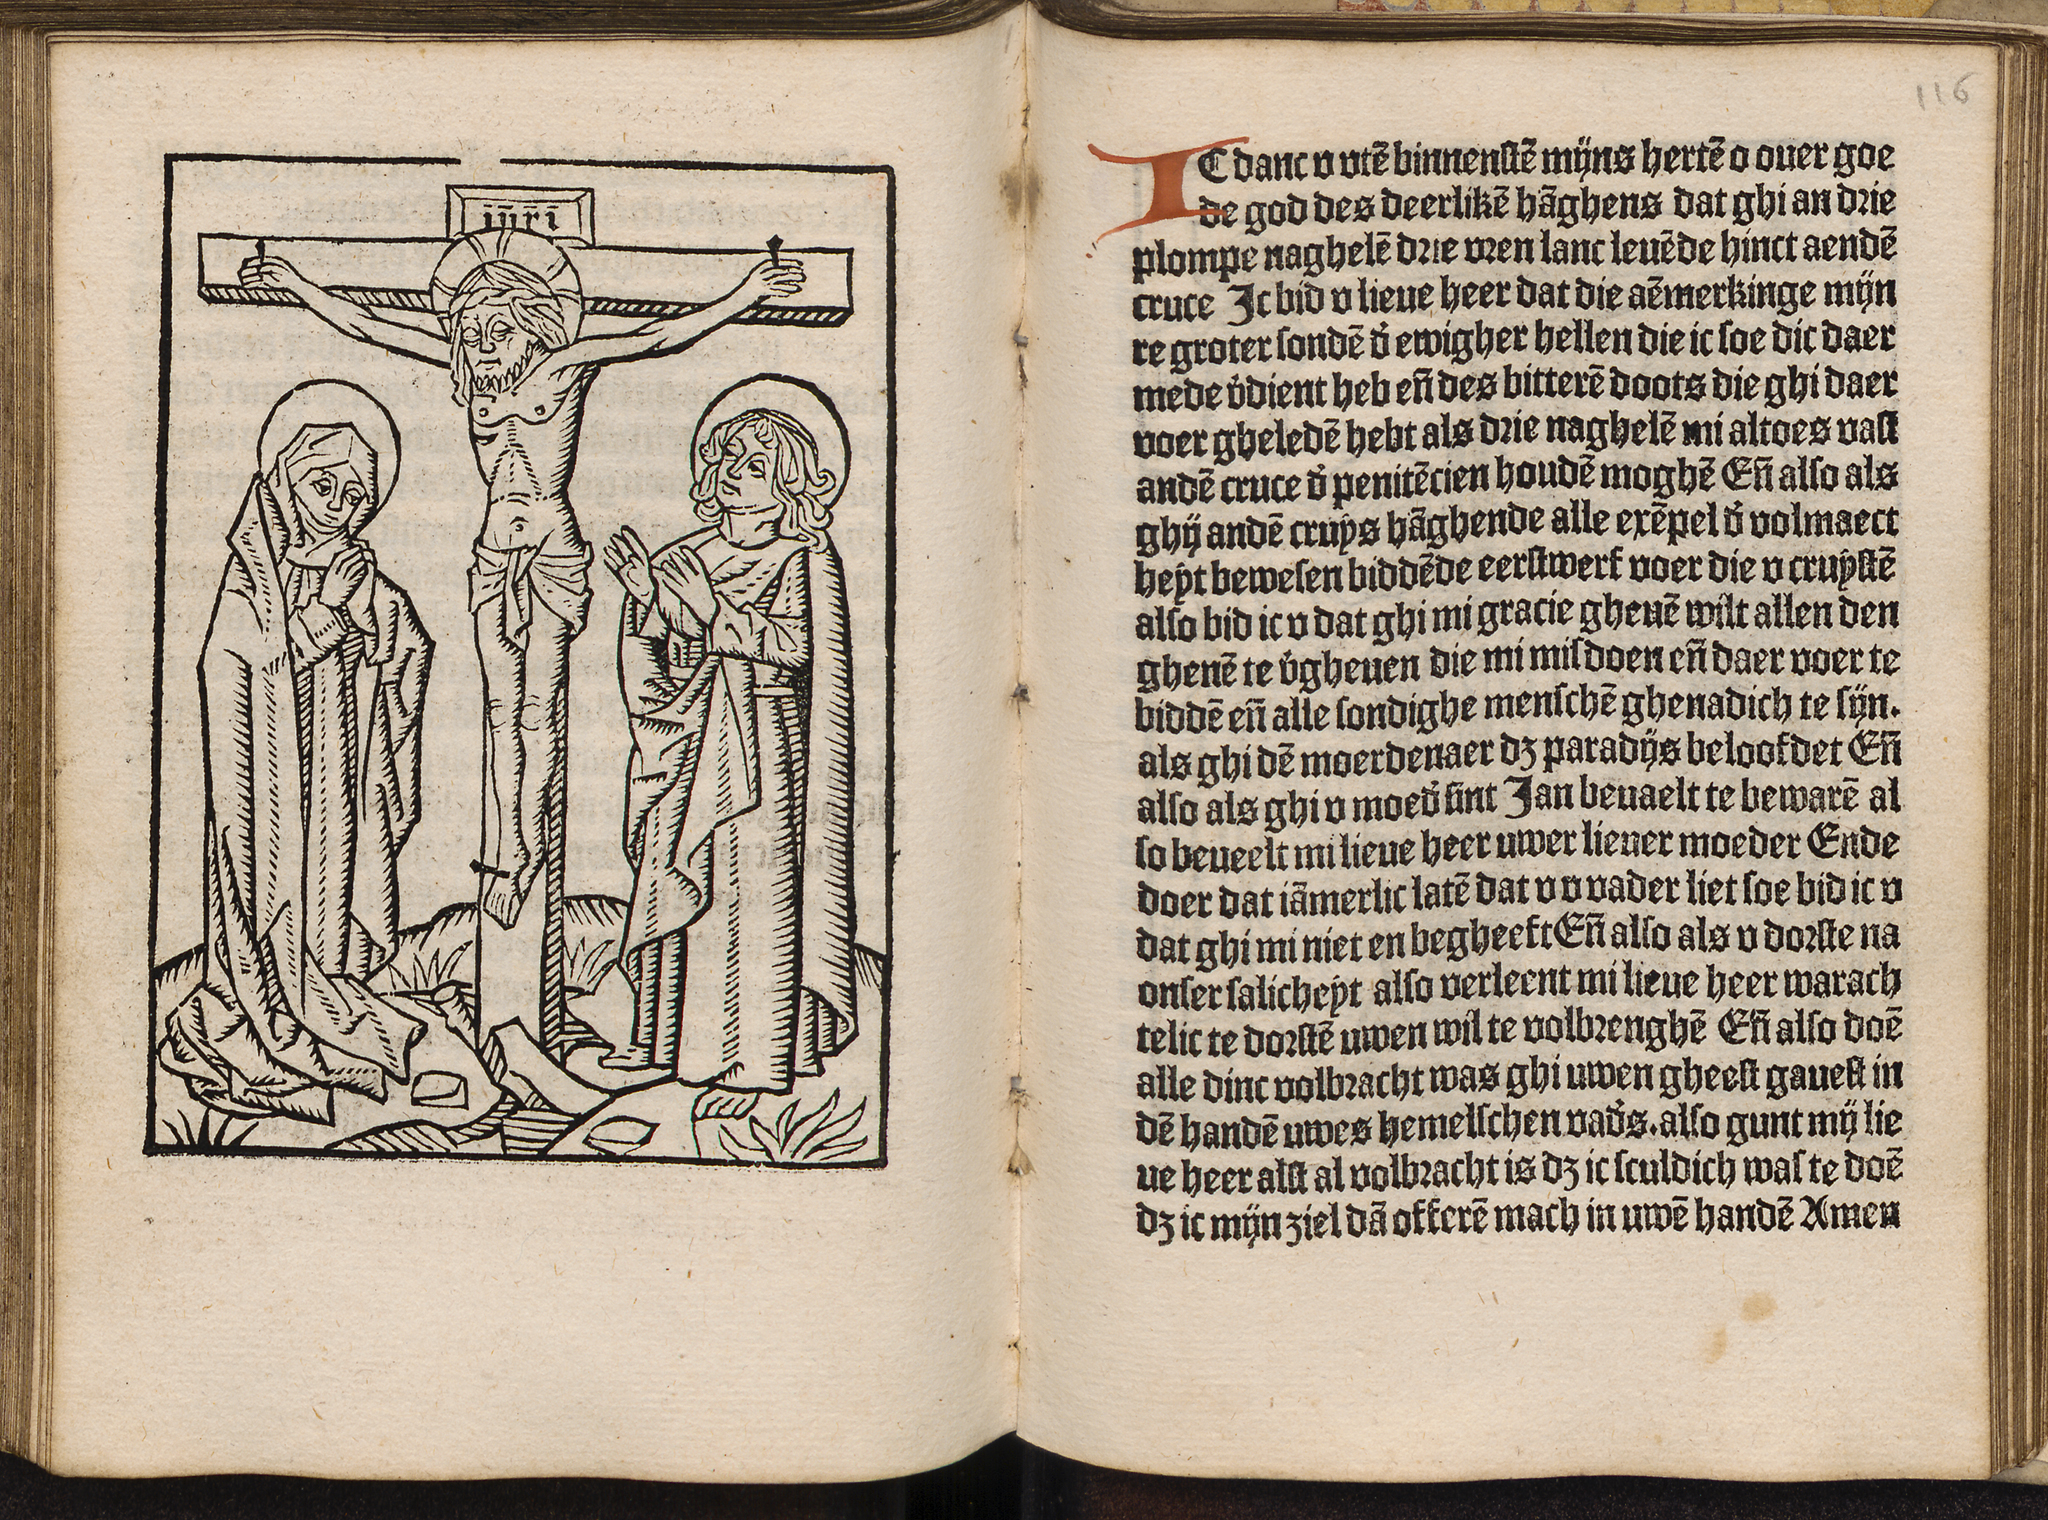 iñri
116
IC danc v vtē binnenstē mijns hertē o ouer goe
de god des deerlikē hāghens dat ghi an drie
plompe naghelē drie vren lanc leuēde hinct aendē
cruce Ic bid v lieue heer dat die aēmerkinge mijn
re groter sondē d̕ ewigher hellen die ic soe dic daer
mede v̕dient heb eñ des bitterē doots die ghi daer
voer gheledē hebt als drie naghelē mi altoes vast
andē cruce d̕ penitēcien houdē moghē Eñ also als
ghij andē cruys hāghende alle exēpel d̕ volmaect
heyt bewesen biddēde eerstwerf voer die v cruystē
also bid ic v dat ghi mi gracie gheuē wilt allen den
ghenē te v̕gheuen die mi misdoen eñ daer voer te
biddē eñ alle sondighe menschē ghenadich te sijn.
als ghi dē moerdenaer dz paradijs beloofdet Eñ
also als ghi v moed̕ sint Jan beuaelt te bewarē al
so beueelt mi lieue heer uwer lieuer moeder Ende
doer dat iāmerlic latē dat v v vader liet soe bid ic v
dat ghi mi niet en begheeft Eñ also als v dorste na
onser salicheyt also verleent mi lieue heer warach
telic te dorstē uwen wil te volbrenghē Eñ also doē
alle dinc volbracht was ghi uwen gheest gauest in
dē handē uwes hemelschen vad̕s. also gunt mij lie
ue heer alst al volbracht is dz ic sculdich was te doē
dz ic mijn ziel dā offerē mach in uwē handē Amen